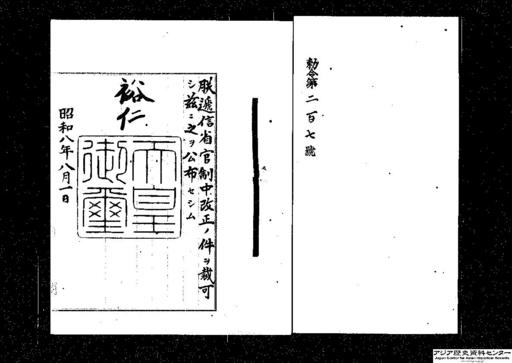 勅令第二百七號
朕遞信省官制中改正ノ件ヲ裁可
シ茲ニ之ヲ公布セシム
裕仁
天皇
御璽
昭和八年八月一日
アジア歴史資料センター
Japan Center for Asian Historical Records